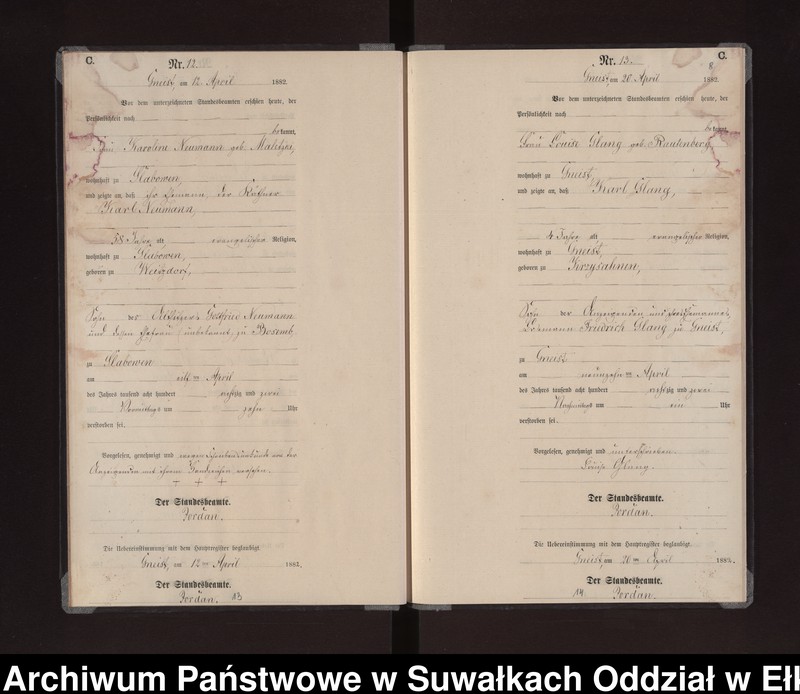 C.
Nr. 12.
Gneist, am 12 April 1882.
Vor dem unterzeichneten Standesbeamten erschien heute, der
Persönlichkeit nach
bekannt,
Karoline Neumann geb.
wohnhaft zu Glabowen,
und zeigte an, daß ihr Ehemann, der Käthner
Karl Neumann,
58 Jahre alt evangelischer Religion,
wohnhaft zu Glabowen,
geboren zu
Sohn des Altsitzers Gottfried Neumann
und dessen Ehefrau, unbekannt, zu Bosemb
zu Glabowen
am April
des Jahres tausend acht hundert achtzig und zwei
Vormittags um zehn Uhr
verstorben sei.
Vorgelesen, genehmigt und wegen Schreibensunkunde von der
Anzeigenden mit ihrem Handzeichen versehen.
+ + +
Der Standesbeamte.
Jordan.
Die Uebereinstimmung mit dem Hauptregister beglaubigt.
Gneist, am 12ten April 1882.
Der Standesbeamte.
Jordan. 13
C.
Nr. 13.
8
Gneist, am 20 April 1882
Vor dem unterzeichneten Standesbeamten erschien heute, der
Persönlichkeit nach
bekannt,
Frau Louise Glang geb. Rautenberg
wohnhaft zu Gneist,
und zeigte an, daß Karl Glang,
4 Jahre alt evangelischer Religion,
wohnhaft zu Gneist,
geboren zu
Sohn der Anzeigenden und ihres Ehemannes,
Friedrich Glang zu Gneist,
zu Gneist
am neunzehnten April
des Jahres tausend acht hundert achtzig und zwei
Nachmittags um ein Uhr
verstorben sei.
Vorgelesen, genehmigt und unterschrieben
Louise Glang.
Der Standesbeamte.
Jordan.
Die Uebereinstimmung mit dem Hauptregister beglaubigt.
Gneist, am 20ten April 1882.
Der Standesbeamte.
14 Jordan.
Archiwum Państwowe w Suwałkach Oddział w Ełk